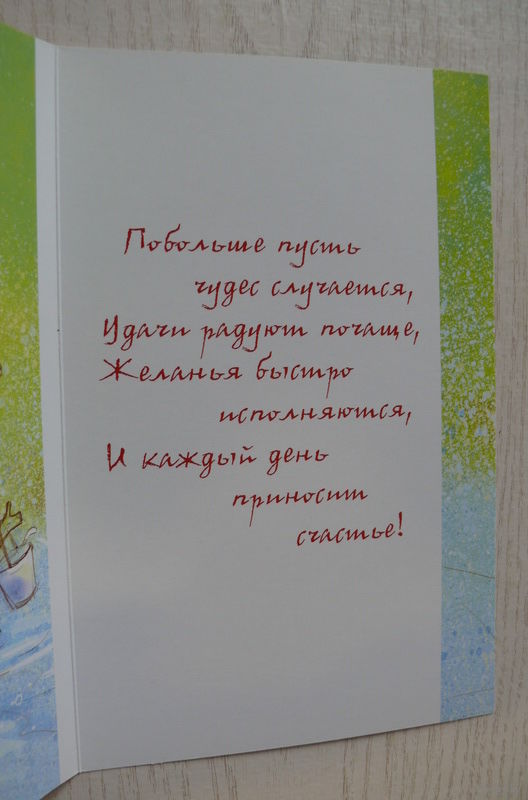 Побольше пусть
чудес случается,
Удачи радуют почаще,
Желанья быстро
исполняются,
И каждый день
приносит
счастье!